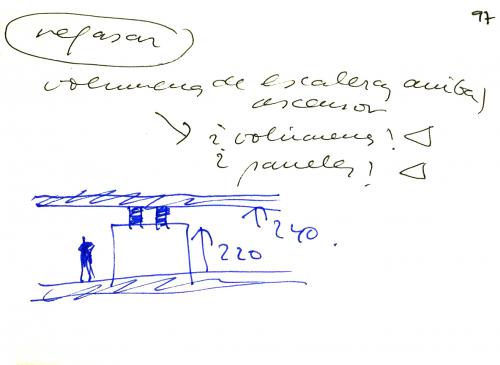 97
repasar
volumenes de escaleras arriba y
ascensor
¿ volúmenes?
¿ paneles?
240.
220